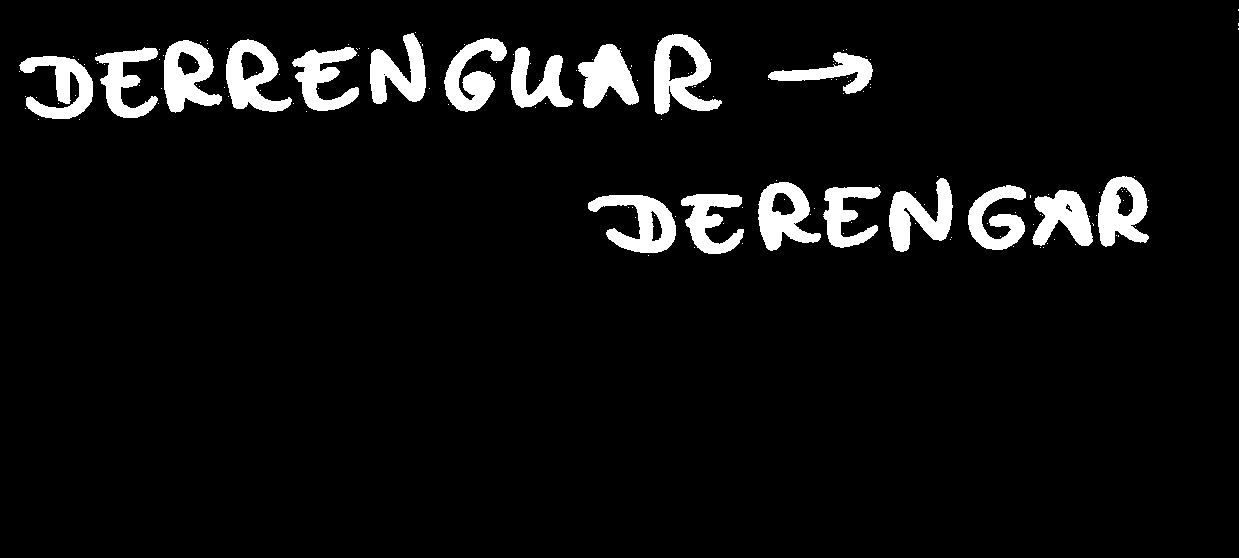 DERRENGUAR →
DERENGAR